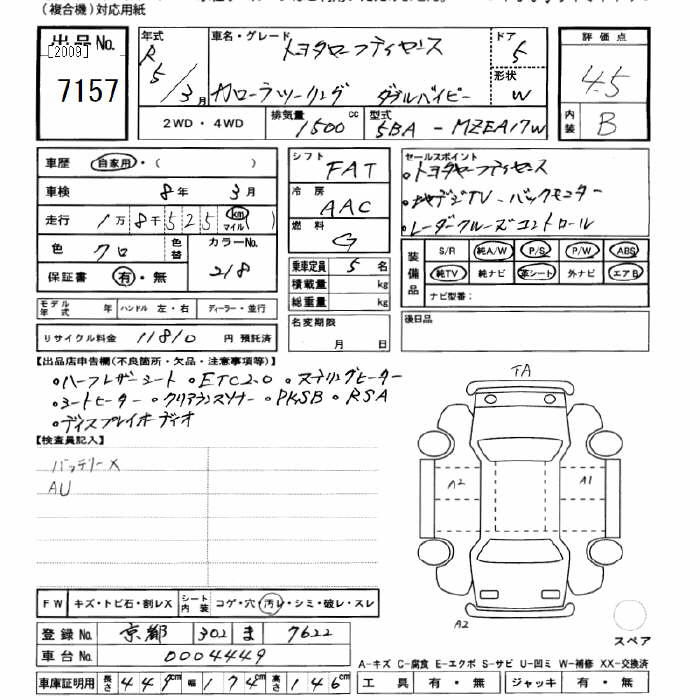 (複合機)対応用紙
出品No.
[2009]
7157
年式 R5/3月
車名・グレード トヨタセーフティセンス
カローラツーリング ダブルバイビー
ドア 5
形状 W
評価点 4.5
内装 B
2WD・4WD 排気量 1500cc 型式 5BA-MZEA17W
車歴 自家用・( )
車検 8年 3月
走行 1万8千525 km マイル( )
色 クロ 色替 カラーNo. 218
保証書 有・無
モデル年式 年 ハンドル 左・右 ディーラー・並行
リサイクル料金 11810円 預託済
シフト FAT
冷房 AAC
燃料 G
乗車定員 5名
積載量 kg
総重量 kg
名変期限 月 日
セールスポイント
。トヨタセーフティセンス
。地デジTV-バックモニター
。レーダークルーズコントロール
装備品 S/R 純A/W P/S P/W ABS
純TV 純ナビ 革シート 外ナビ エアB
ナビ型番:
後日品
【出品店申告欄(不良箇所・欠品・注意事項等)】
。ハーフレザーシート 。ETC2.0 。ステリングヒーター
。シートヒーター 。クリアランスソナー 。PKSB 。RSA
。ディスプレイオーディオ
【検査員記入】
バッテリーX
AU
TA
A2
A1
A2
スペア
FW キズ・トビ石・割レX シート内装 コゲ・穴・汚レ・シミ・破レ・スレ
登録No. 京都 302 ま 7622
車台No. 0004449
車庫証明用 長さ 449cm 幅 174cm 高さ 146cm
A-キズ C-腐食 E-エクボ S-サビ U-凹ミ W-補修 XX-交換済
工具 有・無 ジャッキ 有・無